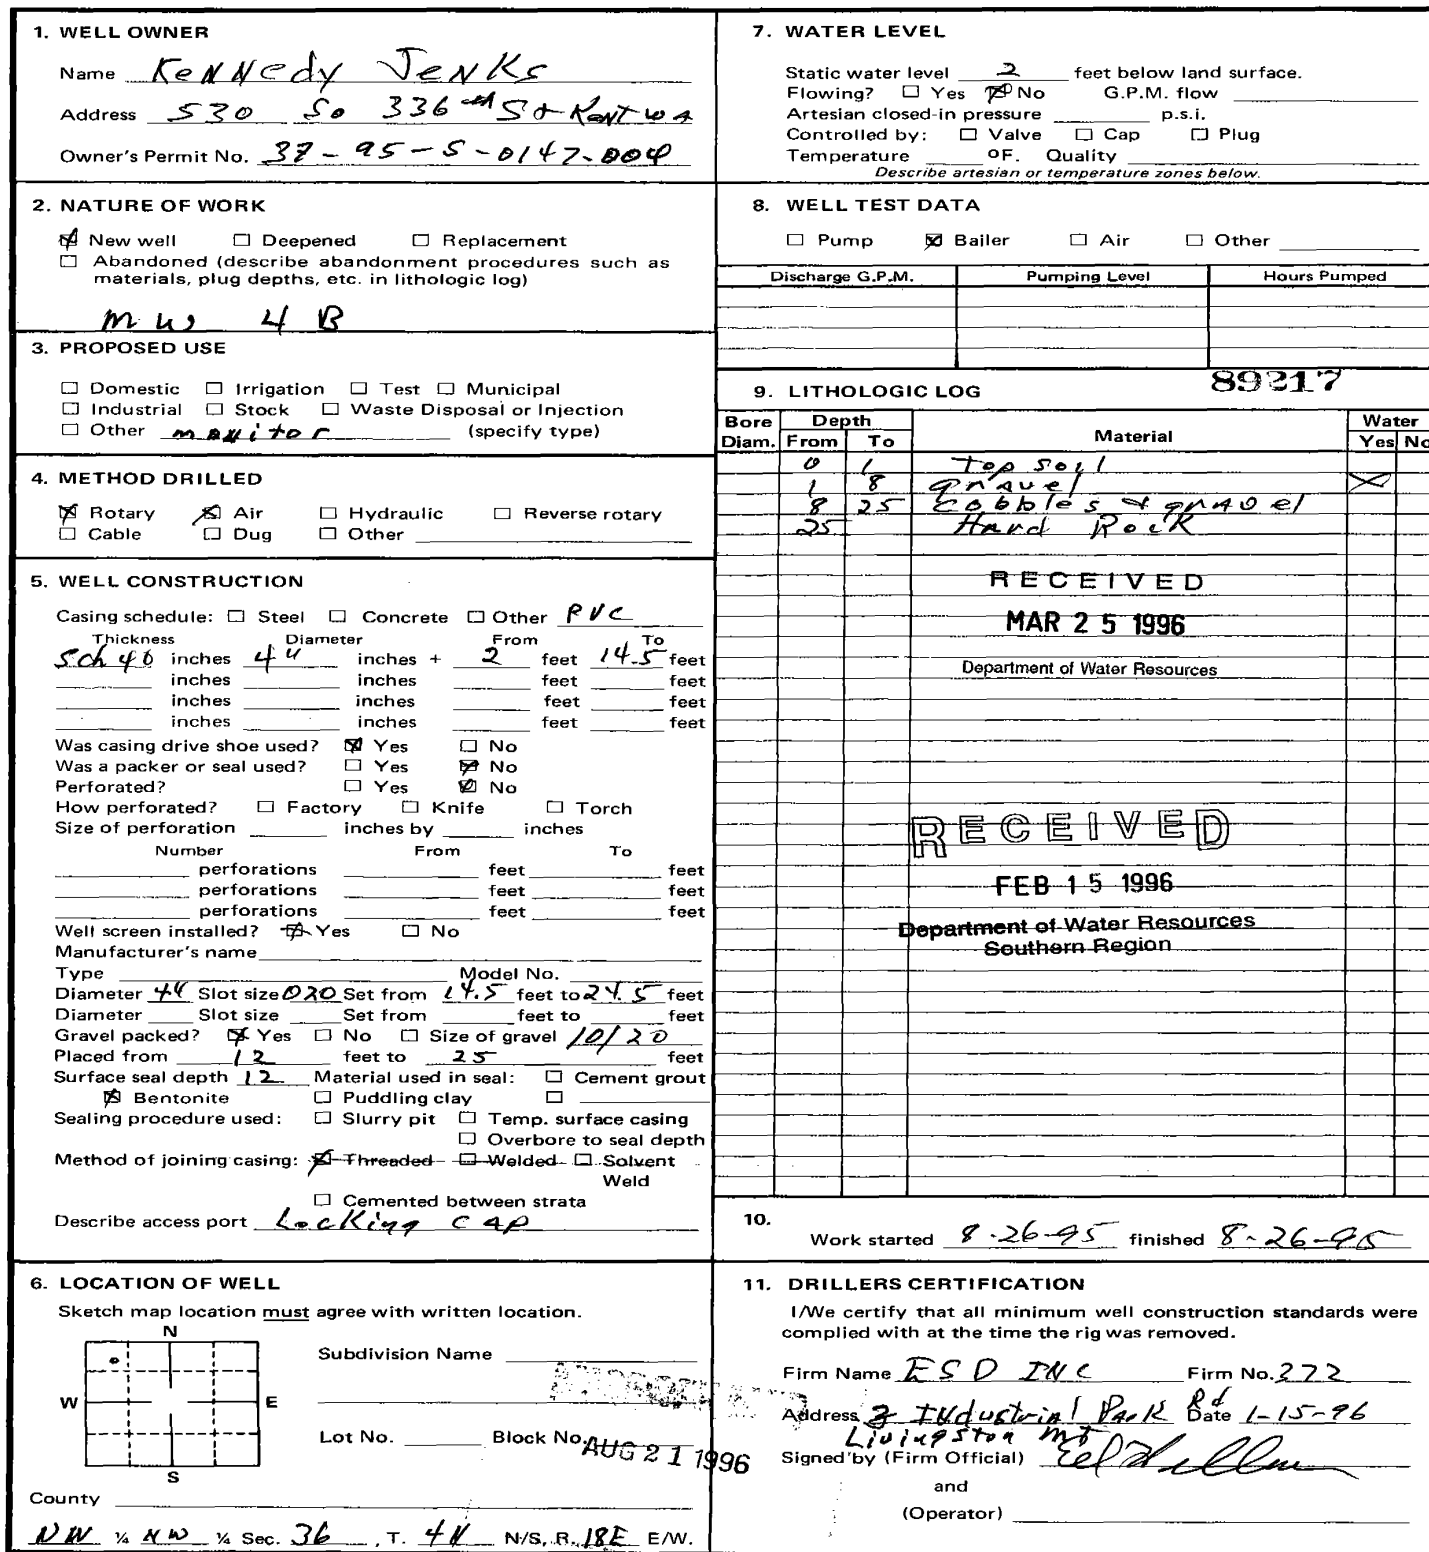 1. WELL OWNER
Name KeNNedy JeNKs
Address 530 So 336 th St Kent WA
Owner's Permit No. 37-95-S-0147-004
2. NATURE OF WORK
New well Deepened Replacement
Abandoned (describe abandonment procedures such as
materials, plug depths, etc. in lithologic log)
MW 4 B
3. PROPOSED USE
Domestic Irrigation Test Municipal
Industrial Stock Waste Disposal or Injection
Other monitor (specify type)
4. METHOD DRILLED
Rotary Air Hydraulic Reverse rotary
Cable Dug Other
5. WELL CONSTRUCTION
Casing schedule: Steel Concrete Other PVC
Thickness Diameter From To
Sch 40 inches 4" inches + 2 feet 14.5 feet
inches inches feet feet
inches inches feet feet
inches inches feet feet
Was casing drive shoe used? Yes No
Was a packer or seal used? Yes No
Perforated? Yes No
How perforated? Factory Knife Torch
Size of perforation inches by inches
Number From To
perforations feet feet
perforations feet feet
perforations feet feet
Well screen installed? Yes No
Manufacturer's name
Type Model No.
Diameter 4" Slot size 020 Set from 14.5 feet to 24.5 feet
Diameter Slot size Set from feet to feet
Gravel packed? Yes No Size of gravel 10/20
Placed from 12 feet to 25 feet
Surface seal depth 12 Material used in seal: Cement grout
Bentonite Puddling clay
Sealing procedure used: Slurry pit Temp. surface casing
Overbore to seal depth
Method of joining casing: Threaded Welded Solvent
Weld
Cemented between strata
Describe access port Locking cap
6. LOCATION OF WELL
Sketch map location must agree with written location.
N
W E
S
Subdivision Name
Lot No. Block No.
AUG 21 1996
County
NW ¼ NW ¼ Sec. 36, T. 4N N/S, R. 18E E/W.
7. WATER LEVEL
Static water level 2 feet below land surface.
Flowing? Yes No G.P.M. flow
Artesian closed-in pressure p.s.i.
Controlled by: Valve Cap Plug
Temperature OF. Quality
Describe artesian or temperature zones below.
8. WELL TEST DATA
Pump Bailer Air Other
Discharge G.P.M. Pumping Level Hours Pumped
89217
9. LITHOLOGIC LOG
Bore Depth Water
Diam. From To Material Yes No
0 1 Top soil
1 8 gravel X
8 25 Cobbles & gravel
25 Hard Rock
RECEIVED
MAR 25 1996
Department of Water Resources
RECEIVED
FEB 15 1996
Department of Water Resources
Southern Region
10.
Work started 8-26-95 finished 8-26-95
11. DRILLERS CERTIFICATION
I/We certify that all minimum well construction standards were
complied with at the time the rig was removed.
Firm Name ESD INC Firm No. 272
Address Industrial Park Rd Date 1-15-96
Livingston MT
Signed by (Firm Official)
and
(Operator)